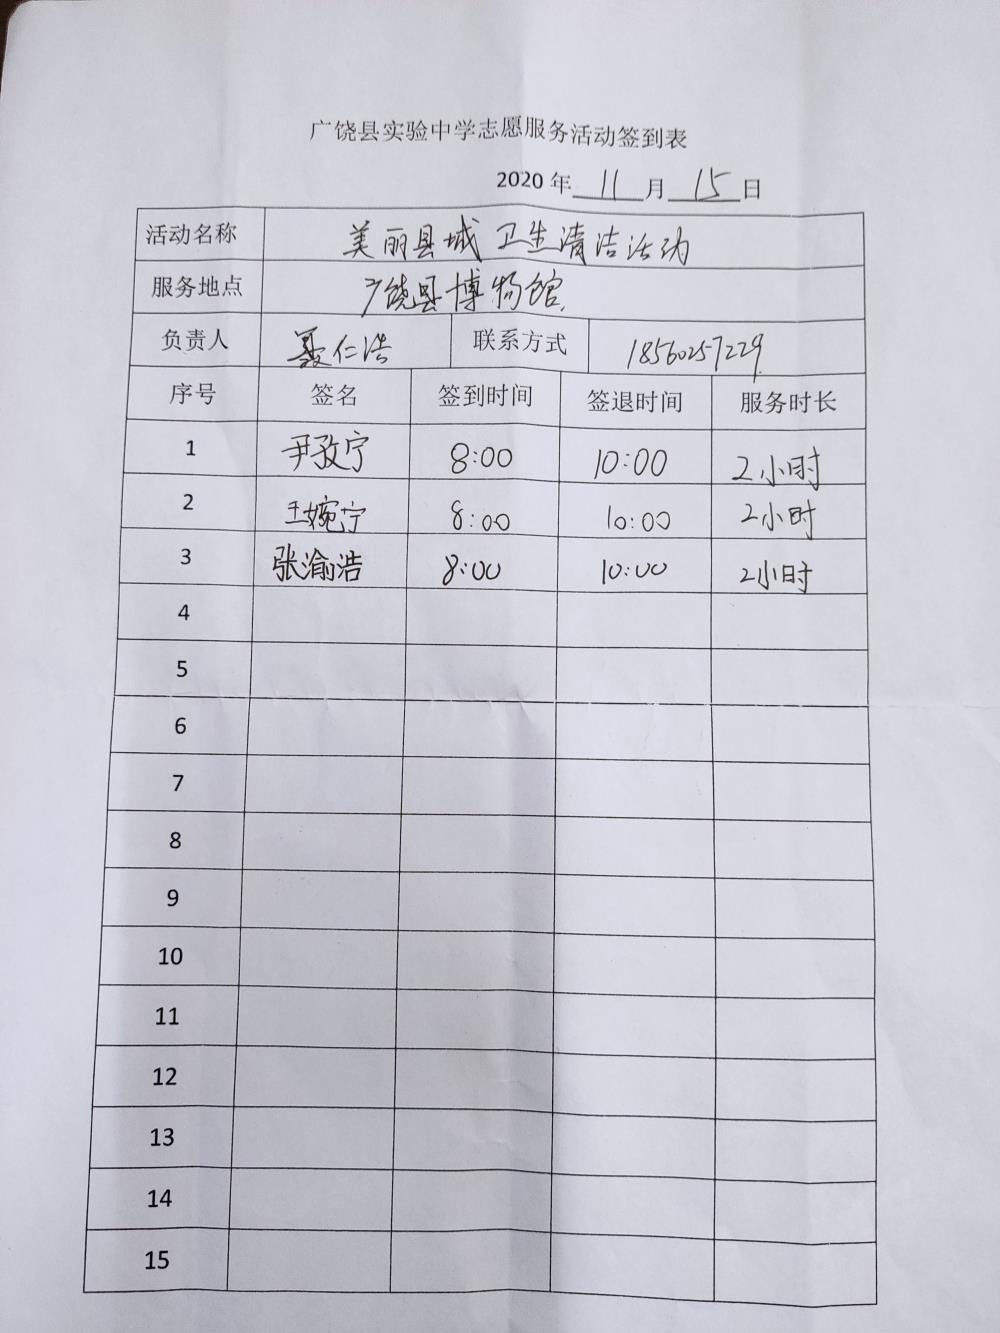 广饶县实验中学志愿服务活动签到表
2020 年 11 月 15 日
活动名称 美丽县城卫生清洁活动
服务地点 广饶县博物馆
负责人 聂仁浩 联系方式 18560257229
序号 签名 签到时间 签退时间 服务时长
1 尹孜宁 8:00 10:00 2小时
2 王婉宁 8:00 10:00 2小时
3 张渝浩 8:00 10:00 2小时
4
5
6
7
8
9
10
11
12
13
14
15